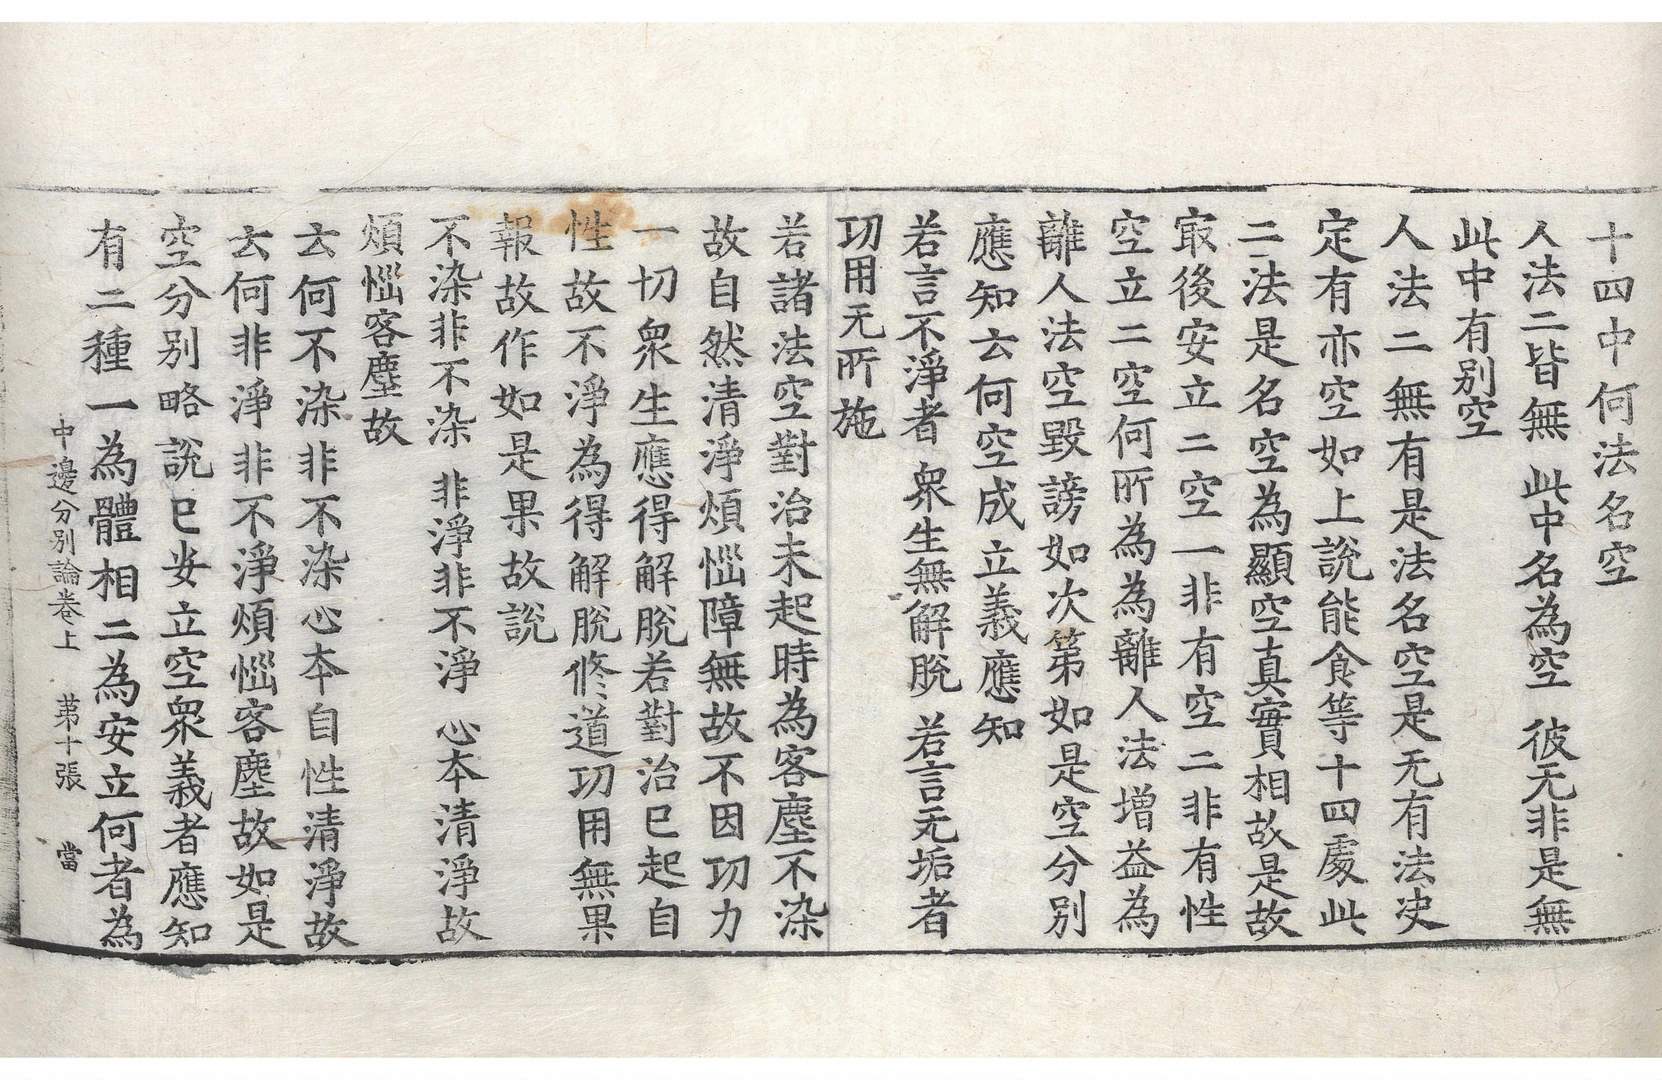 十四中何法名空
人法二皆無 此中名為空 彼无非是無
此中有別空
人法二無有是法名空是无有法决
定有亦空如上說能食等十四處此
二法是名空為顯空真實相故是故
冣後安立二空一非有空二非有性
空立二空何所為為離人法增益為
離人法空毀謗如次第如是空分別
應知云何空成立義應知
若言不淨者 衆生無解脫 若言无垢者
功用无所施
若諸法空對治未起時為客塵不染
故自然清淨煩惱障無故不因功力
一切衆生應得解脫若對治已起自
性故不淨為得解脫修道功用無果
報故作如是果故說
不染非不染 非淨非不淨 心本清淨故
煩惱客塵故
云何不染非不染心本自性清淨故
云何非淨非不淨煩惱客塵故如是
空分別略說已安立空衆義者應知
中邊分別論卷上 第十張 當
有二種一為體相二為安立何者為